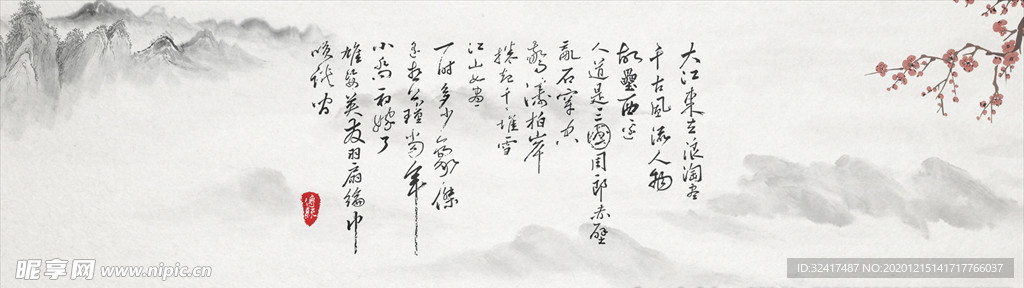 大江東去浪淘尽
千古風流人物
故壘西边
人道是三國周郎赤壁
亂石穿空
驚濤拍岸
捲起千堆雪
江山如畫
一时多少豪傑
遥想公瑾当年
小喬初嫁了
雄姿英发羽扇綸巾
谈笑間
昵享网 www.nipic.cn
ID:32417487 NO:20201215141717766037